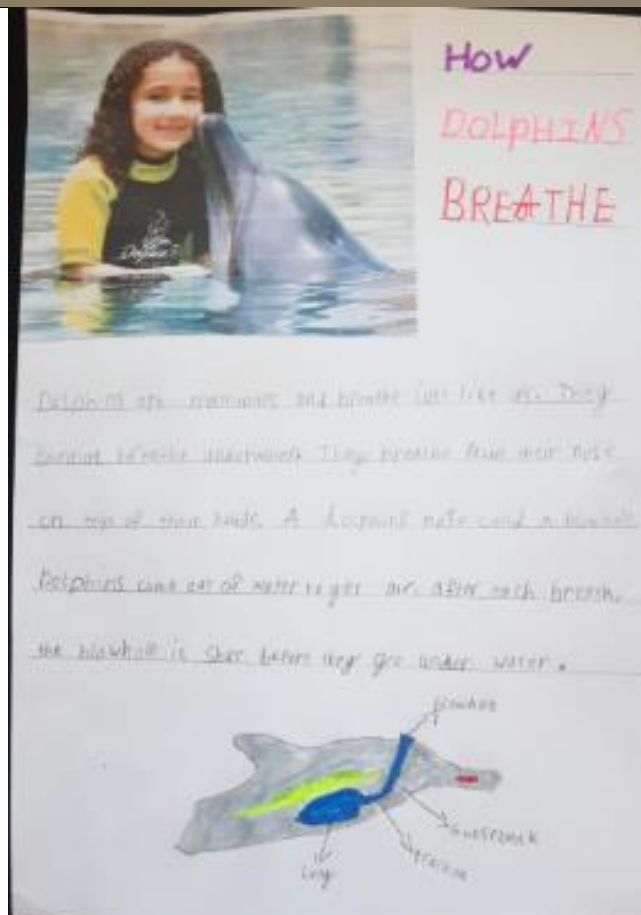 HOW
DOLPHINS
BREATHE
Dolphins are mammals and breathe just like us. They
cannot breathe underwater. They breathe from their nose
on top of their heads. A Docphins nose calld a blowhole
Dolphins come out of water to get air. after each breath.
the blowhole is shut before they goe under water.
blowhole
goosebeak
trachea
lung